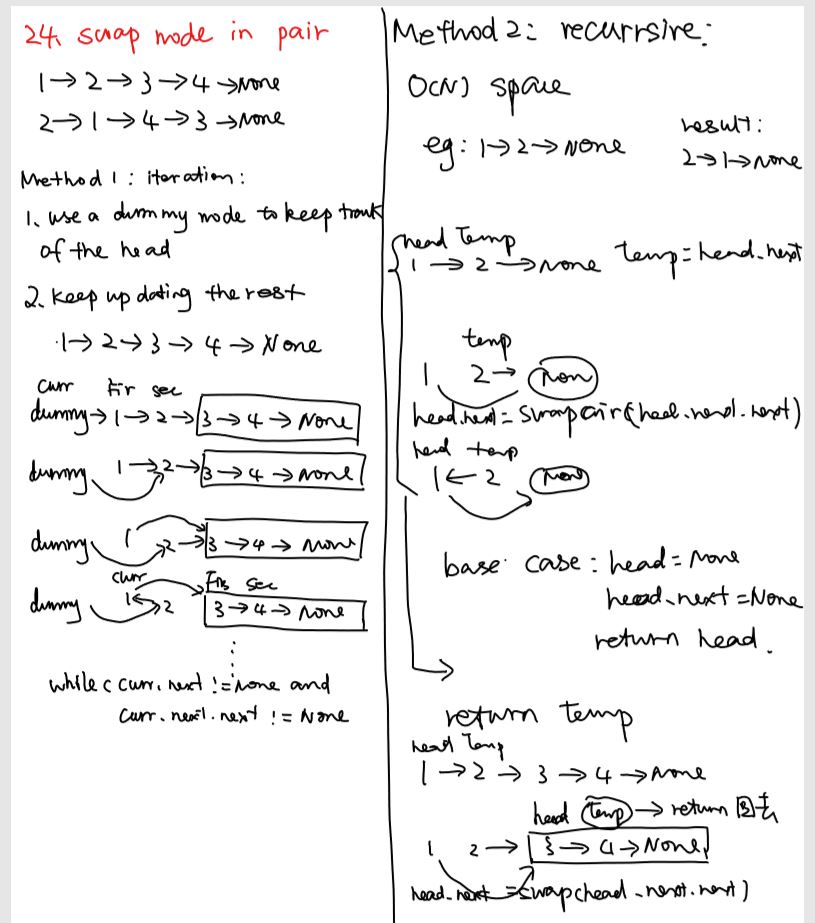 24、swap node in pair
1→2→3→4→None
2→1→4→3→None
Method 1: iteration:
1、use a dummy node to keep track
of the head
2、keep updating the rest
1→2→3→4→None
curr Fir sec
dummy→1→2→3→4→None
dummy 1→2→3→4→None
dummy 1 2→3→4→None
curr Firs sec
dummy 1 2 3→4→None
while ( curr.next != None and
curr.next.next != None
Method 2: recurrsive:
O(N) space
eg: 1→2→None
result:
2→1→None
head Temp
1→2→None temp=head.next
temp
1 2→Non
head.next=swappair(head.next.next)
head temp
1←2 Non
base case: head=None
head.next=None
return head.
return temp
head Temp
1→2→3→4→None
head Temp→return 回去
1 2→3→4→None
head.next=swap(head.next.next)